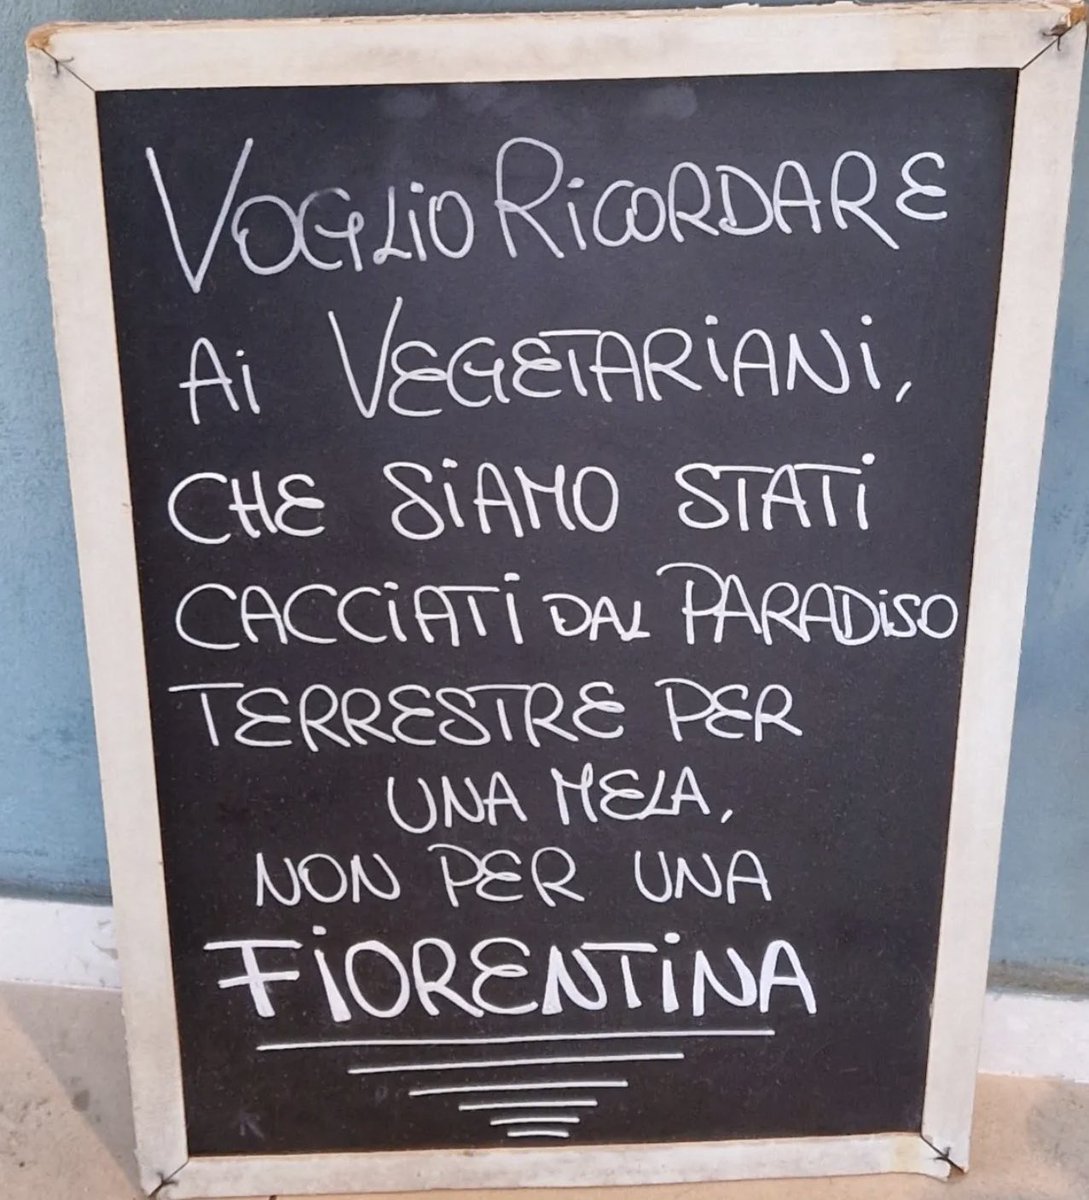 VOGLIO RICORDARE
AI VEGETARIANI,
CHE SIAMO STATI
CACCIATI DAL PARADISO
TERRESTRE PER
UNA MELA,
NON PER UNA
FIORENTINA